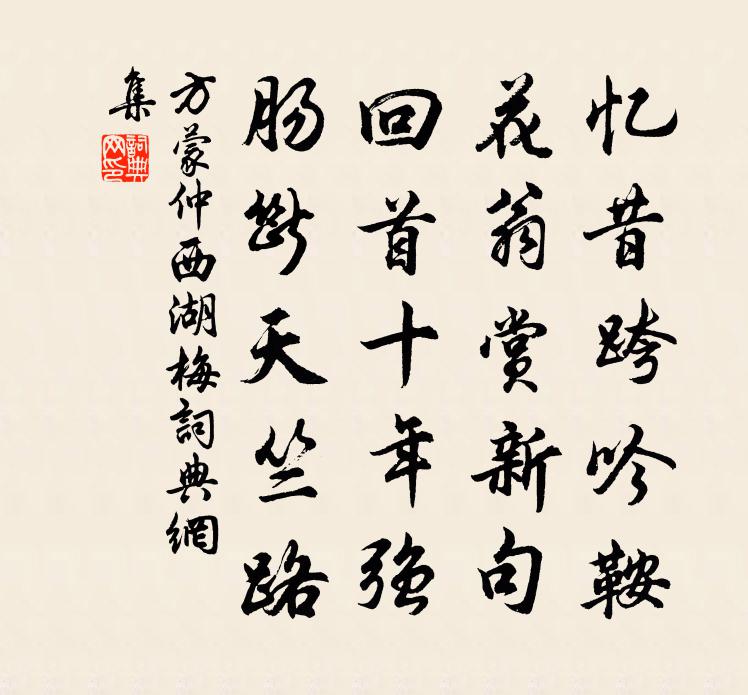 忆昔跨吟鞍
花翁赏新句
回首十年强
肠断天竺路
方蒙仲西湖梅詞典網
集
詞典網印